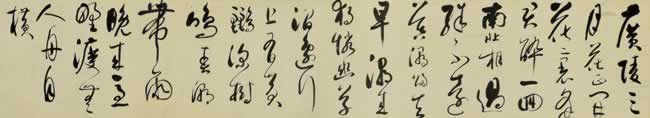 廣陵三
月花正開
花裏逢
君醉一回
南北相過
殊不遠
暮潮歸去
早潮來
獨憐幽草
澗邊行
上有黃
鸝深樹
鳴春潮
帶雨
晚來急
野渡無
人舟自
橫